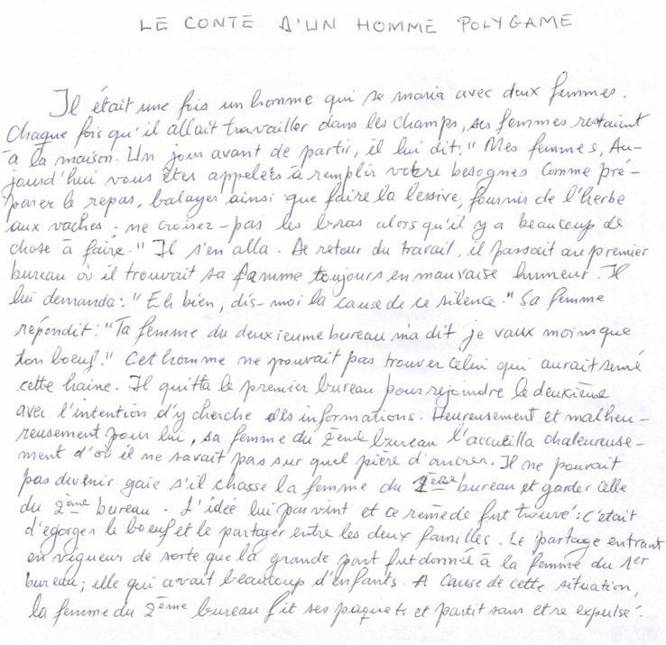 LE CONTE D'UN HOMME POLYGAME
Il était une fois un homme qui se maria avec deux femmes.
Chaque fois qu'il allait travailler dans les champs, ses femmes restaient
à la maison. Un jour avant de partir, il lui dit: "Mes femmes, Au-
jourd'hui vous êtes appelées à remplir votre besognes comme pré-
parer le repas, balayer ainsi que faire la lessive, fournir de l'herbe
aux vaches; ne croisez-pas les bras alors qu'il y a beaucoup de
chose à faire." Il s'en alla. De retour du travail, il passait au premier
bureau où il trouvait sa famme toujours en mauvaise humeur. Il
lui demanda: "Eh bien, dis-moi la cause de ce silence." Sa femme
répondit: "Ta femme du deuxieume bureau m'a dit je vaux moins que
ton boeuf." Cet homme ne pouvait pas trouver celui qui aurait semé
cette haine. Il quitta le premier bureau pour rejoindre le deuxième
avec l'intention d'y cherche des informations. Heureusement et malheu-
reusement pour lui, sa femme du 2ème bureau l'accueilla chaleureuse-
ment d'où il ne savait pas sur quel pière d'ancrer. Il ne pouvait
pas devenir gaie s'il chasse la femme du 1ère bureau et garder celle
du 2ème bureau. L'idée lui parvint et ce remède fut trouvé: c'était
d'égorger le boeuf et le partager entre les deux familles. Le partage entrant
en vigueur de sorte que la grande part fut donnée à la femme du 1er
bureau; elle qui avait beaucoup d'enfants. A cause de cette situation,
la femme du 2ème bureau fit ses paquets et partit sans etre expulsé.